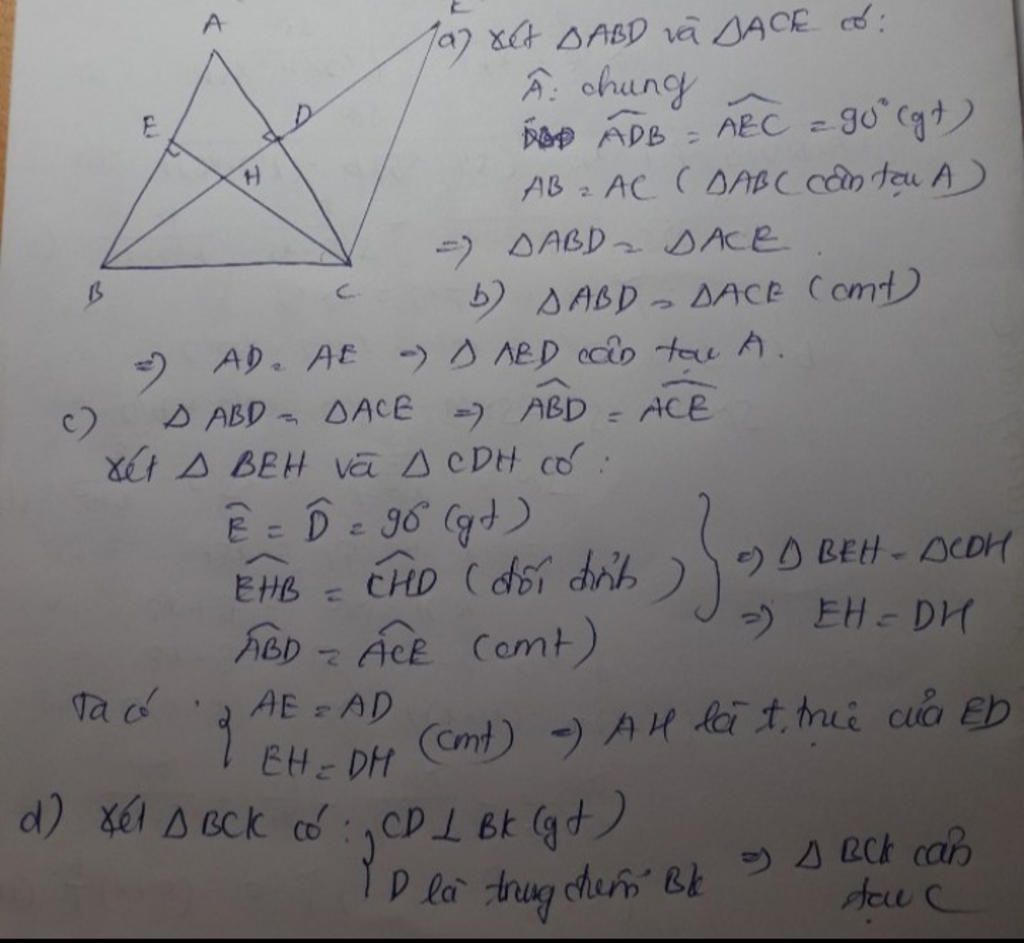 A
E
D
H
B
C
a) xét ΔABD và ΔACE có:
Â: chung
ADB = AEC = 90° (gt)
AB = AC (ΔABC cân tại A)
=> ΔABD = ΔACE.
b) ΔABD = ΔACE (cmt)
=> AD = AE => ΔAED cân tại A.
c) ΔABD = ΔACE => ABD = ACE
xét Δ BEH và Δ CDH có:
Ê = D̂ = 90° (gt)
EHB = CHD (đối đỉnh)
ABD = ACE (cmt)
=> Δ BEH = ΔCDH
=> EH = DH
Ta có: { AE = AD
EH = DH (cmt) => AH là t.trực của ED
d) xét ΔBCK có: { CD ⊥ BK (gt)
D là trung điểm BK => Δ BCK cân
tại C